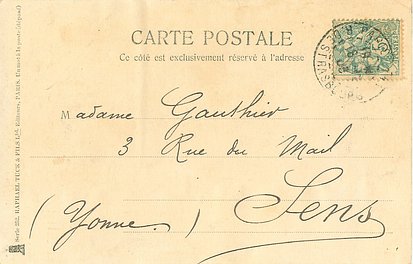 CARTE POSTALE
Ce côté est exclusivement réservé à l'adresse
Madame Gauthier
3 Rue du Mail
Sens
(Yonne)
Série 252. RAPHAEL TUCK & FILS Ld. Editeurs, PARIS.
R. DE STRASBOURG